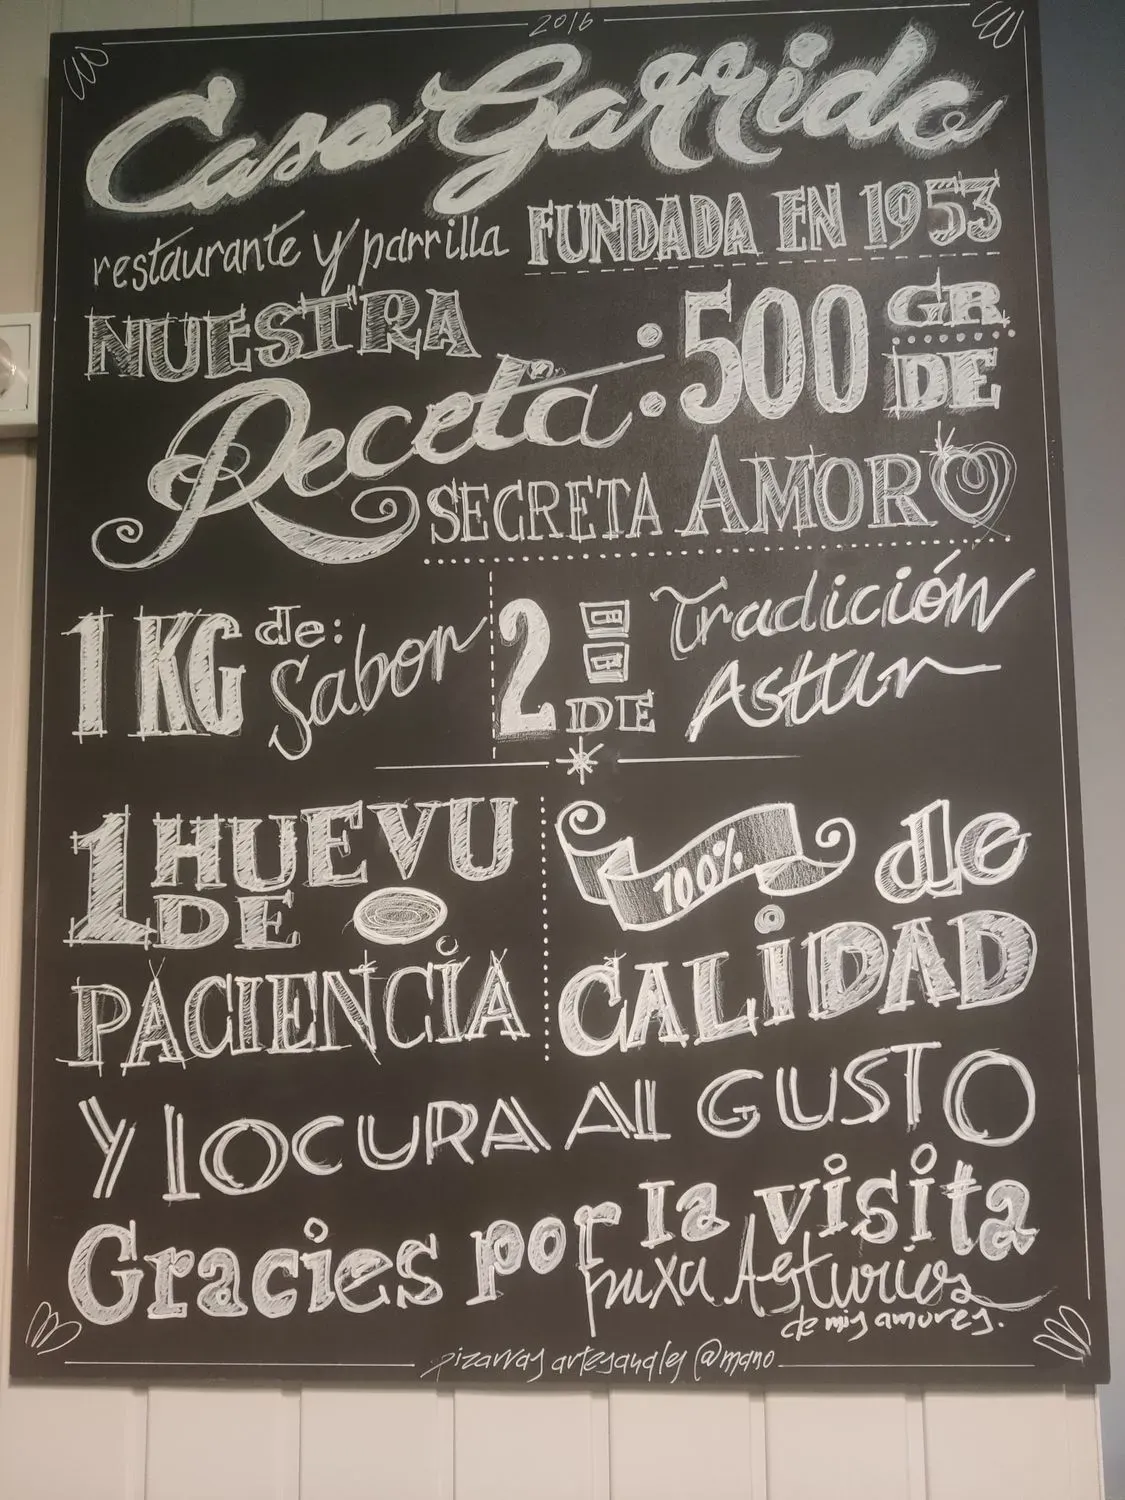 2016
Casa Garrido
restaurante y parrilla FUNDADA EN 1953
NUESTRA
Receta
SECRETA
: 500 GR
DE
AMOR
1 KG de:
Sabor
2
DE
Tradición
Astur
1 HUEVU
DE
PACIENCIA
100% de
CALIDAD
Y LOCURA AL GUSTO
Gracies por la visita
puxa Asturies
de mis amores.
pizarras artesanales @mano